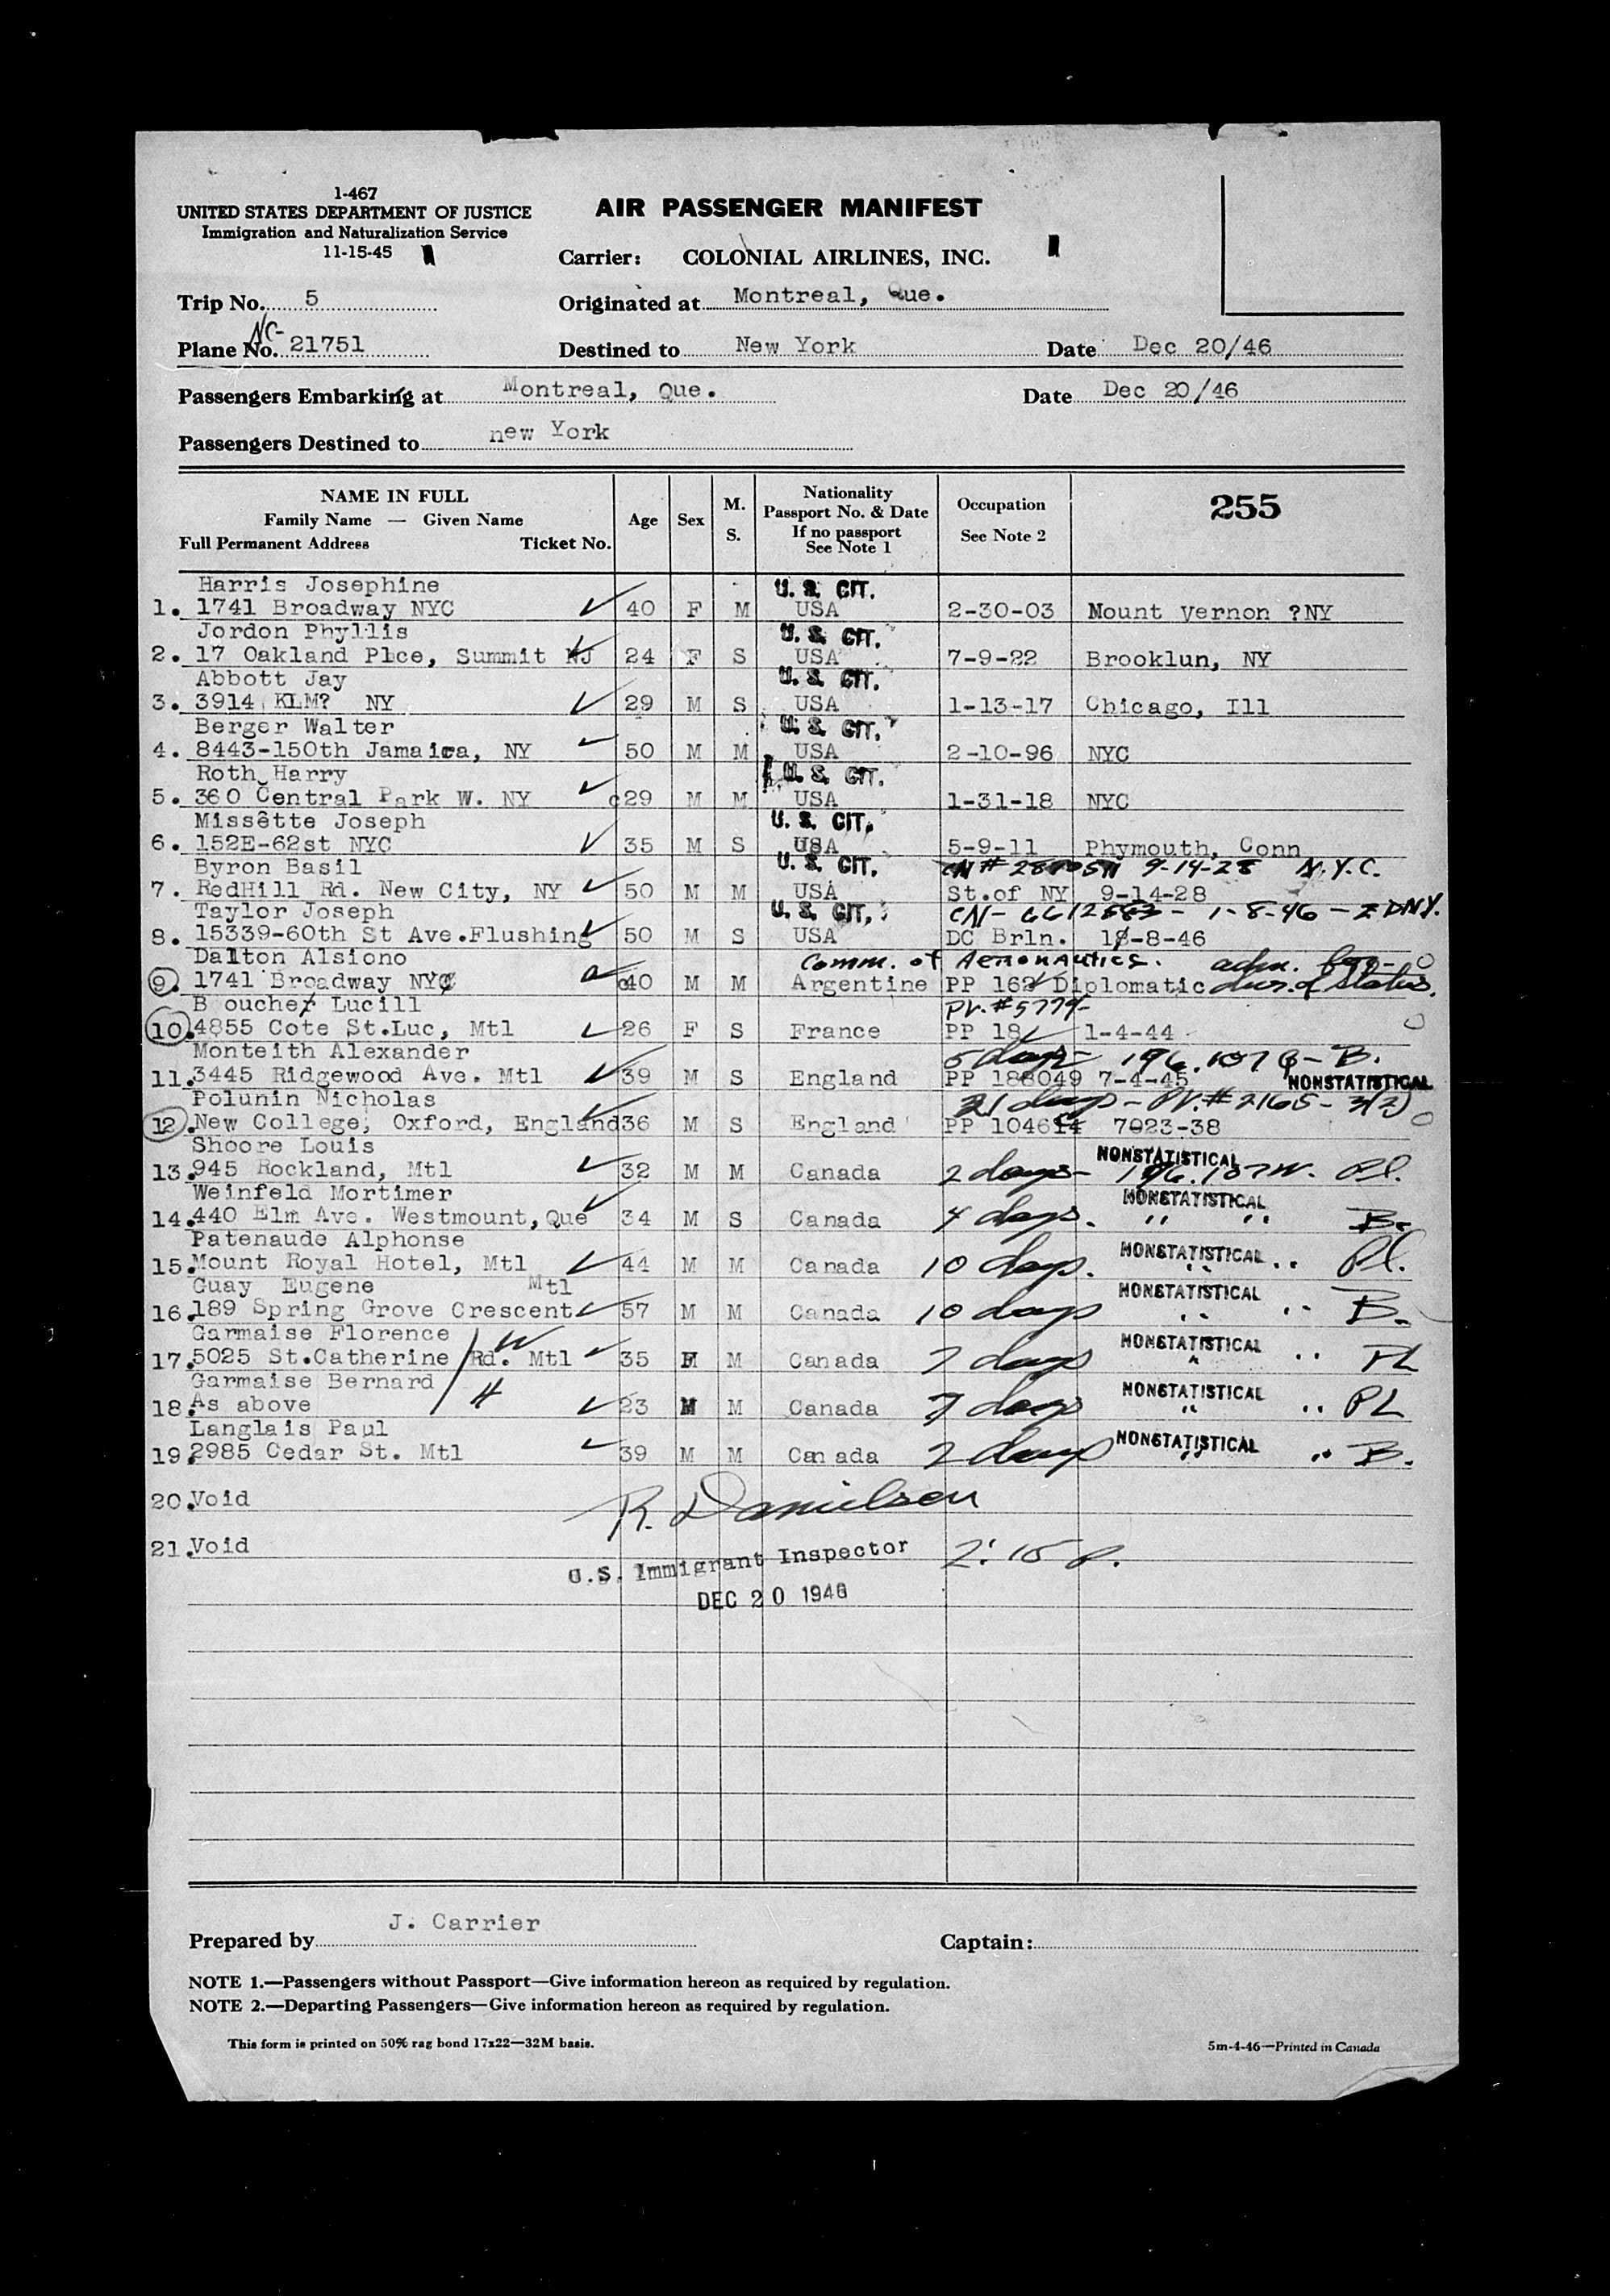 1-467
UNITED STATES DEPARTMENT OF JUSTICE
Immigration and Naturalization Service
11-15-45
AIR PASSENGER MANIFEST
Carrier: COLONIAL AIRLINES, INC.
Trip No. 5
Originated at Montreal, Que.
NC-
Plane No. 21751
Destined to New York
Date Dec 20/46
Passengers Embarking at Montreal, Que.
Date Dec 20/46
Passengers Destined to new York
NAME IN FULL
Family Name — Given Name
Full Permanent Address Ticket No.
Age
Sex
M.
S.
Nationality
Passport No. & Date
If no passport
See Note 1
Occupation
See Note 2
255
Harris Josephine U. S. CIT.
1. 1741 Broadway NYC 40 F M USA 2-30-03 Mount Vernon ?NY
Jordon Phyllis U. S. CIT.
2. 17 Oakland Plce, Summit NJ 24 F S USA 7-9-22 Brooklun, NY
Abbott Jay U. S. CIT.
3. 3914 KLM? NY 29 M S USA 1-13-17 Chicago, Ill
Berger Walter U. S. CIT.
4. 8443-150th Jamaica, NY 50 M M USA 2-10-96 NYC
Roth Harry U. S. CIT.
5. 360 Central Park W. NY 29 M M USA 1-31-18 NYC
Missêtte Joseph U. S. CIT.
6. 152E-62st NYC 35 M S USA 5-9-11 Phymouth, Conn
Byron Basil U. S. CIT. CN# 9-14-28 N.Y.C.
7. RedHill Rd. New City, NY 50 M M USA St.of NY 9-14-28
Taylor Joseph U. S. CIT. CN- 1-8-46
8. 15339-60th St Ave.Flushing 50 M S USA DC Brln. 18-8-46
Dalton Alsiono Comm. of Aeronautics. adm.
9. 1741 Broadway NYC 40 M M Argentine PP 162 Diplomatic of Status.
B oucher Lucill PV.#5779-
10. 4855 Cote St.Luc, Mtl 26 F S France PP 18 1-4-44
Monteith Alexander 5 days- 196.107 B.
11. 3445 Ridgewood Ave. Mtl 39 M S England PP 188049 7-4-45 NONSTATISTICAL
Polunin Nicholas 21 days- PV.#2165- 3(2)
12. New College, Oxford, England 36 M S England PP 104614 7023-38
Shoore Louis NONSTATISTICAL
13. 945 Rockland, Mtl 32 M M Canada 2 days- 196.107 Pl.
Weinfeld Mortimer NONSTATISTICAL
14. 440 Elm Ave. Westmount, Que 34 M S Canada 4 days. " " B.
Patenaude Alphonse NONSTATISTICAL
15. Mount Royal Hotel, Mtl 44 M M Canada 10 days. " " Pl.
Guay Eugene Mtl NONSTATISTICAL
16. 189 Spring Grove Crescent 57 M M Canada 10 days " " B.
Garmaise Florence W NONSTATISTICAL
17. 5025 St.Catherine Rd. Mtl 35 F M Canada 7 days " " PL
Garmaise Bernard H NONSTATISTICAL
18. As above 23 M M Canada 7 days " " PL
Langlais Paul NONSTATISTICAL
19. 2985 Cedar St. Mtl 39 M M Can ada 2 days " " B.
20. Void
R. Danielsen
21. Void
U.S. Immigrant Inspector 2:15 p.
DEC 20 1946
Prepared by J. Carrier
Captain:
NOTE 1.—Passengers without Passport—Give information hereon as required by regulation.
NOTE 2.—Departing Passengers—Give information hereon as required by regulation.
This form is printed on 50% rag bond 17x22—32M basis.
5m-4-46—Printed in Canada